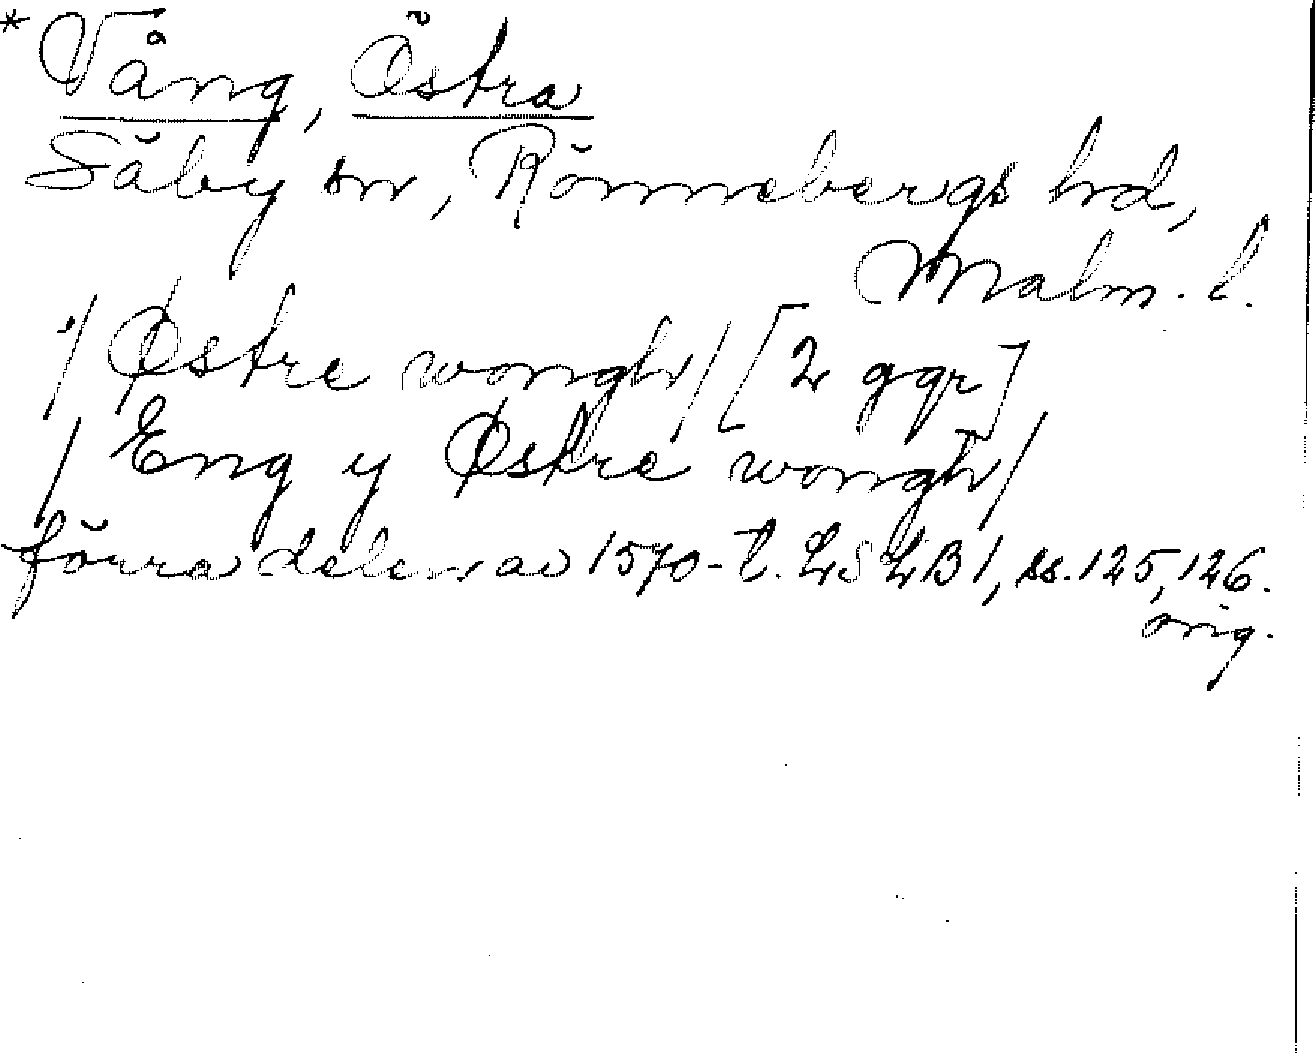 *Vång, Östra
Säby sn, Rönnebergs hd,
Malm. l.
/ Østre wongh / [2 ggr]
/ Eng y Østre wongh /
förra delen av 1570-t. LSLB 1, ss. 125, 126.
orig.